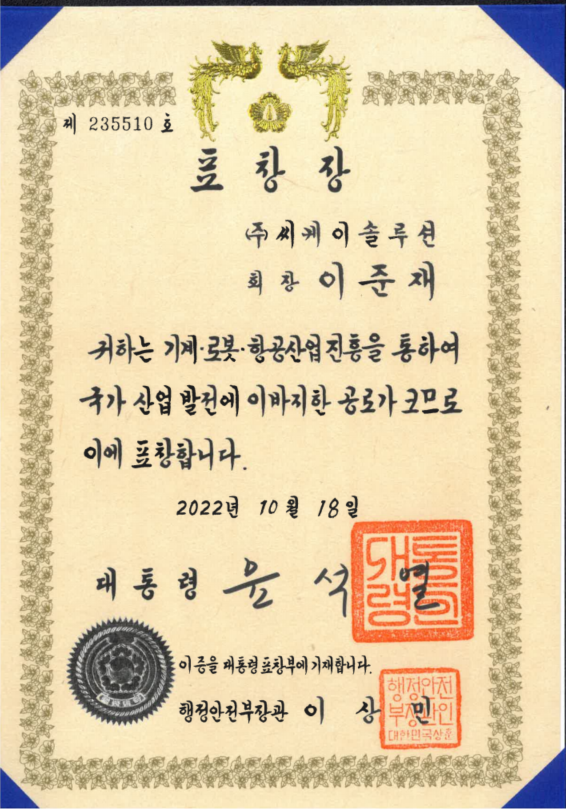 제 235510 호
표 창 장
(주) 씨케이솔루션
회 장 이 준 재
귀하는 기계·로봇·항공산업진흥을 통하여
국가 산업 발전에 이바지한 공로가 크므로
이에 표창합니다.
2022년 10월 18일
대 통 령 윤 석 열
대통령인
이 증을 대통령표창부에 기재합니다.
행정안전부장관 이 상 민
행정안전
부장관인
대한민국상훈